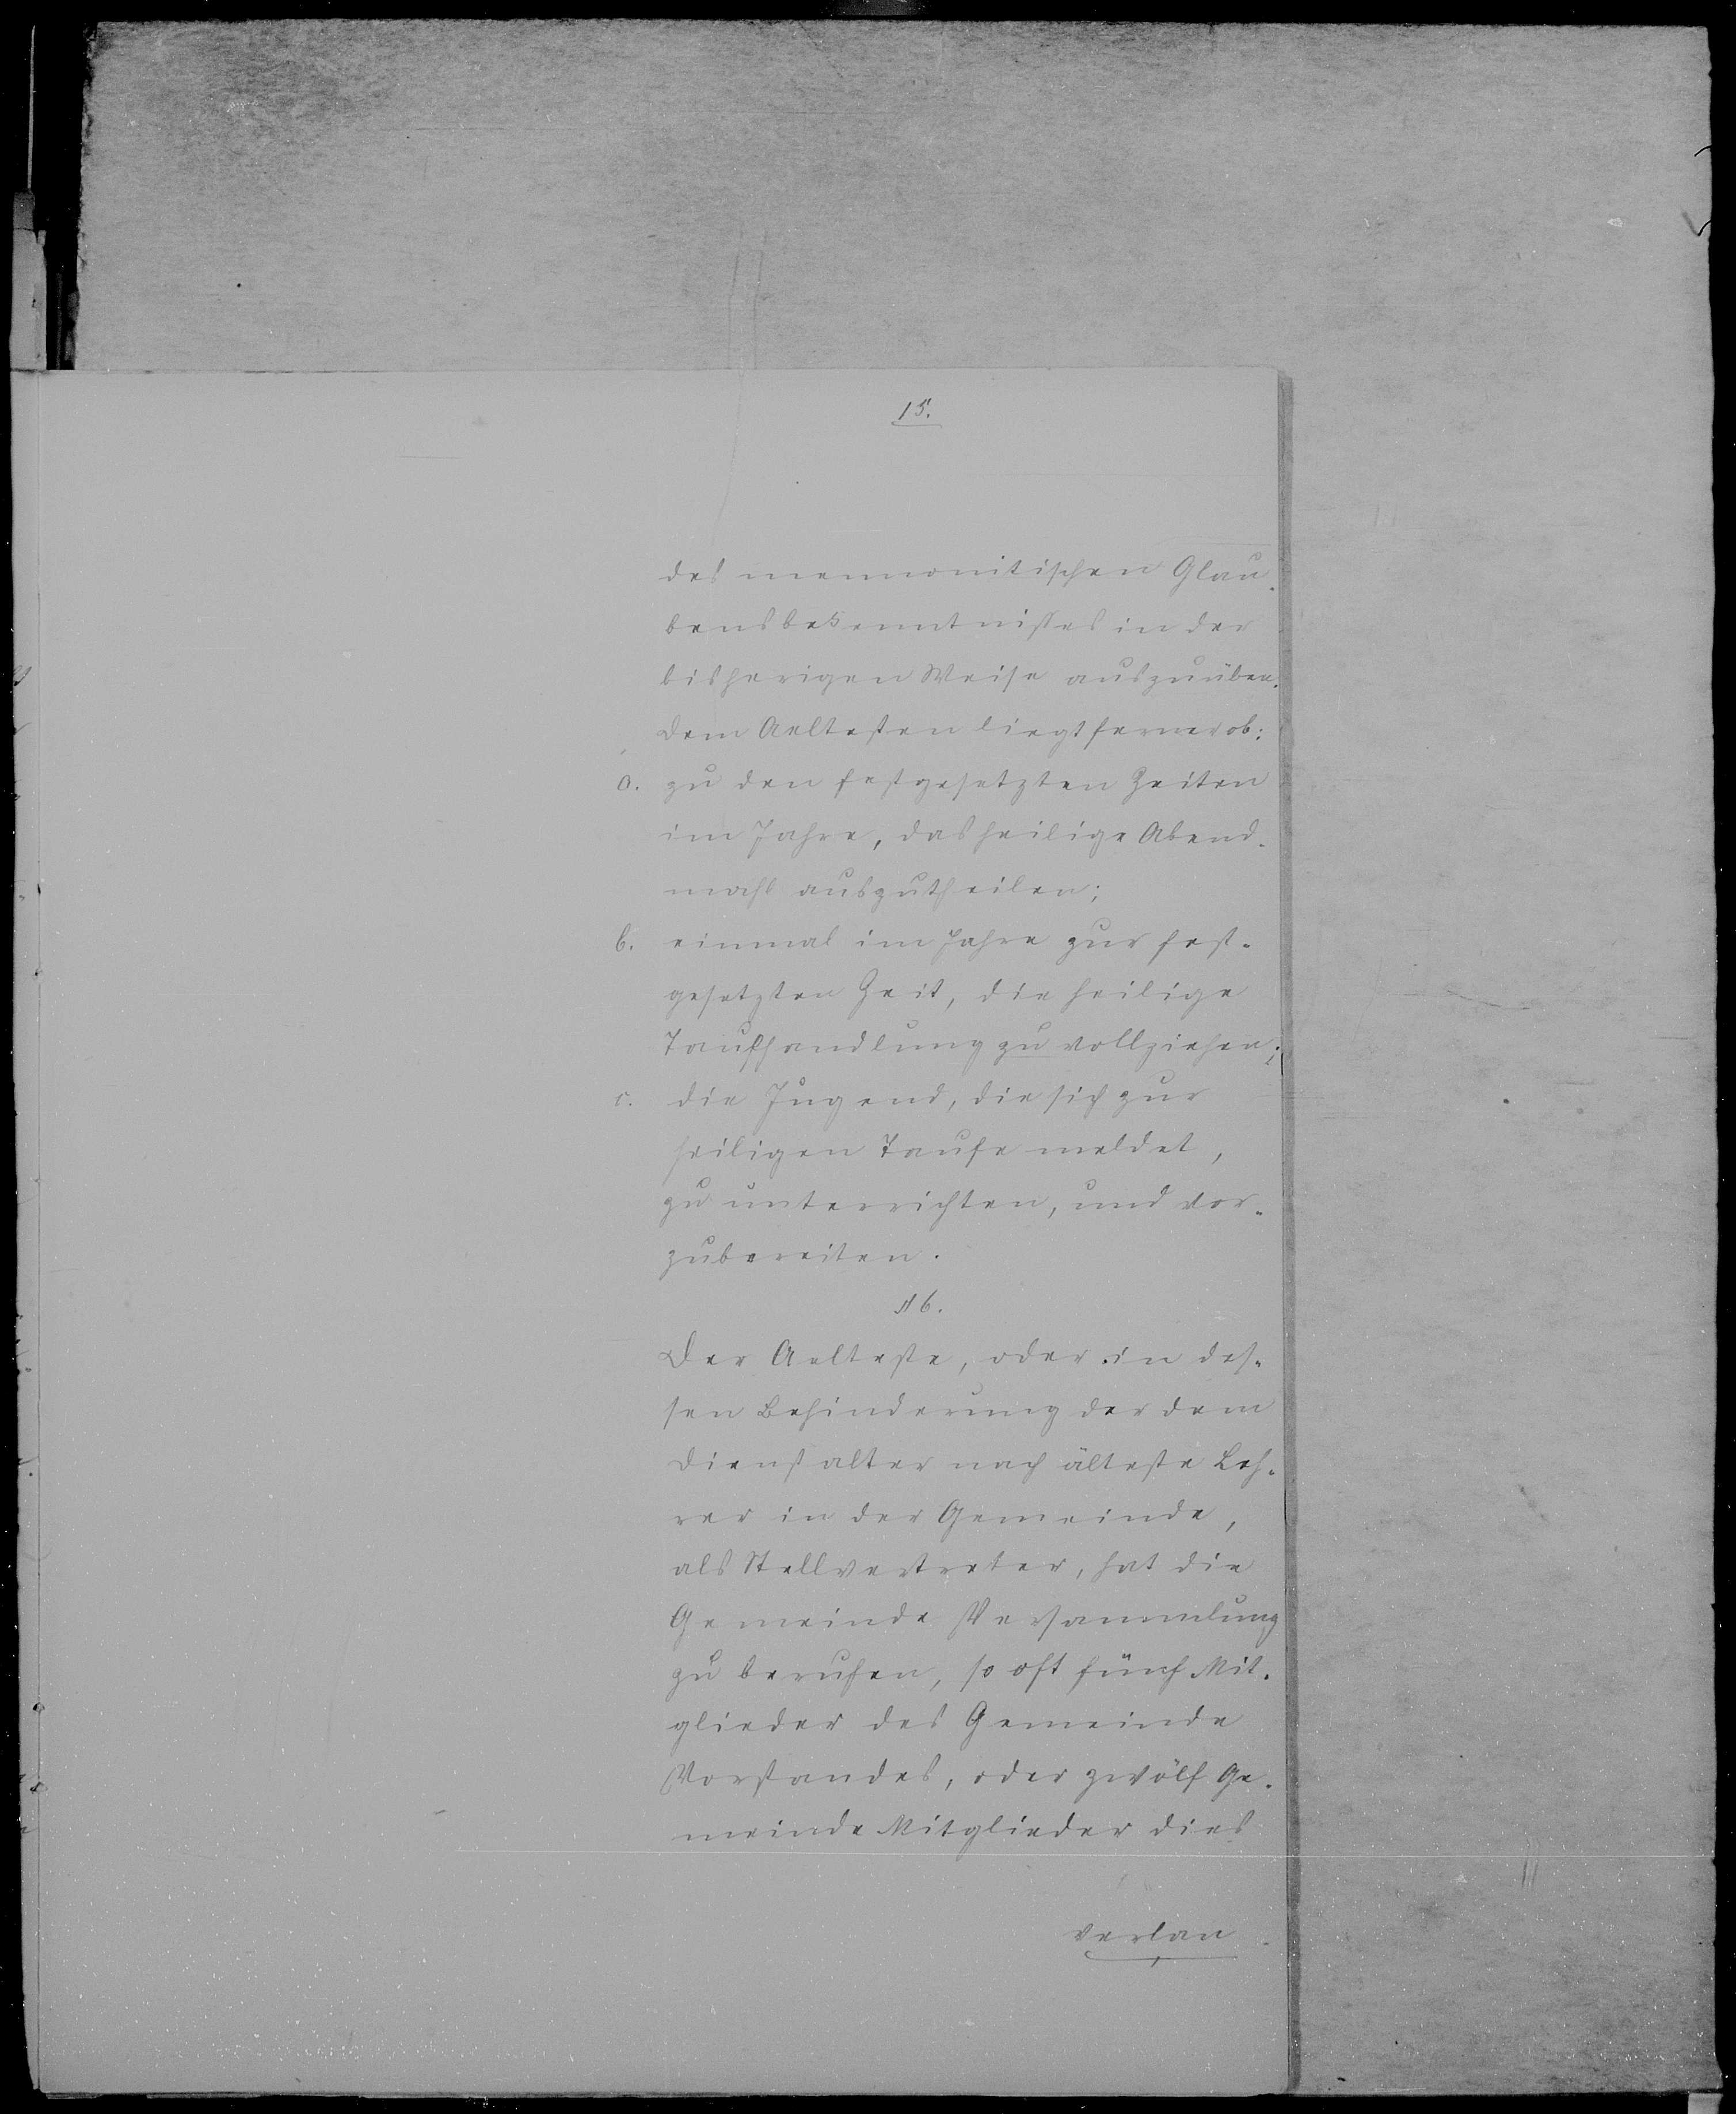 15.
des mennonitischen Glau-
bensbekenntnisses in der
bisherigen Weise auszuüben.
Dem Aeltesten liegt ferner ob:
a. zu den festgesetzten Zeiten
im Jahre, das heilige Abend-
mahl auszutheilen;
b. einmal im Jahre zur fest-
gesetzten Zeit, die heilige
Taufhandlung zu vollziehen;
c. die Jugend, die sich zur
heiligen Taufe meldet,
zu unterrichten, und vor-
zubereiten.
§ 6.
Der Aelteste, oder in des-
sen Behinderung der dem
Dienstalter nach älteste Leh-
rer in der Gemeinde,
als Stellvertreter, hat die
Gemeinde Versammlung
zu berufen, so oft fünf Mit-
glieder des Gemeinde
Vorstandes, oder zwölf Ge-
meinde Mitglieder dies
verlan-